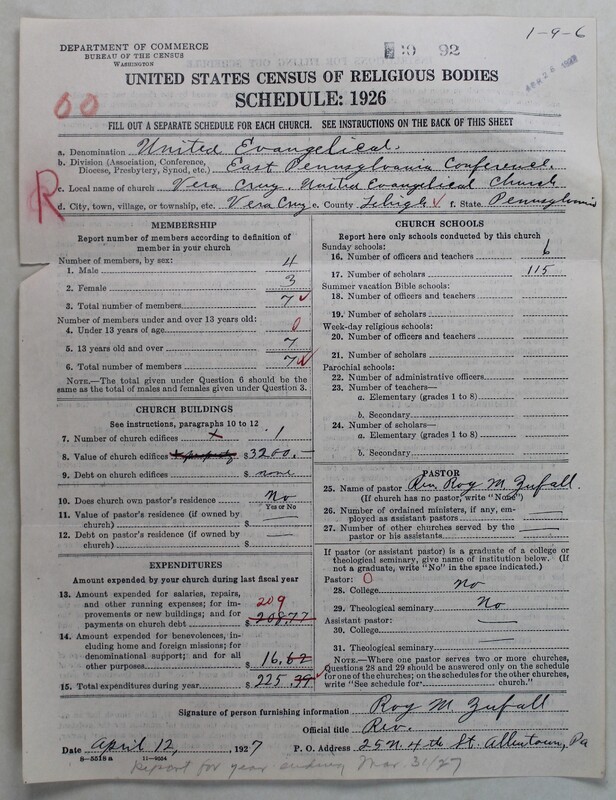 1-9-6
DEPARTMENT OF COMMERCE
BUREAU OF THE CENSUS
WASHINGTON
92
UNITED STATES CENSUS OF RELIGIOUS BODIES
SCHEDULE: 1926
60
FILL OUT A SEPARATE SCHEDULE FOR EACH CHURCH. SEE INSTRUCTIONS ON THE BACK OF THIS SHEET
a. Denomination United Evangelical.
b. Division (Association, Conference, Diocese, Presbytery, Synod, etc.) East Pennsylvania Conference.
R
c. Local name of church Vera Cruz. United Evangelical Church
d. City, town, village, or township, etc. Vera Cruz e. County Lehigh f. State Pennsylvania
MEMBERSHIP
Report number of members according to definition of
member in your church
Number of members, by sex:
1. Male 4
2. Female 3
3. Total number of members 7
Number of members under and over 13 years old:
4. Under 13 years of age 0
5. 13 years old and over 7
6. Total number of members 7
NOTE.—The total given under Question 6 should be
the same as the total of males and females given under Question 3.
CHURCH BUILDINGS
See instructions, paragraphs 10 to 12
7. Number of church edifices 1
8. Value of church edifices $3200.—
9. Debt on church edifices $ none
10. Does church own pastor's residence No
Yes or No
11. Value of pastor's residence (if owned by
church) $ —
12. Debt on pastor's residence (if owned by
church) $ —
EXPENDITURES
Amount expended by your church during last fiscal year
13. Amount expended for salaries, repairs,
and other running expenses; for im-
provements or new buildings; and for
payments on church debt $ 208.77
209
14. Amount expended for benevolences,
including home and foreign missions; for
denominational support; and for all
other purposes $ 16.62
15. Total expenditures during year $ 225.39
CHURCH SCHOOLS
Report here only schools conducted by this church
Sunday schools:
16. Number of officers and teachers 6
17. Number of scholars 115
Summer vacation Bible schools:
18. Number of officers and teachers
19. Number of scholars
Week-day religious schools:
20. Number of officers and teachers
21. Number of scholars
Parochial schools:
22. Number of administrative officers
23. Number of teachers—
a. Elementary (grades 1 to 8)
b. Secondary
24. Number of scholars—
a. Elementary (grades 1 to 8)
b. Secondary
PASTOR
25. Name of pastor Rev. Roy M. Zufall.
(If church has no pastor, write "None")
26. Number of ordained ministers, if any, em-
ployed as assistant pastors —
27. Number of other churches served by the
pastor or his assistants —
If pastor (or assistant pastor) is a graduate of a college or
theological seminary, give name of institution below. (If
not a graduate, write "No" in the space indicated.)
Pastor: 0
28. College No
29. Theological seminary No
Assistant pastor:
30. College —
31. Theological seminary —
NOTE.—Where one pastor serves two or more churches,
Questions 28 and 29 should be answered only on the schedule
for one of the churches; on the schedules for the other churches,
write "See schedule for church."
Signature of person furnishing information Roy M Zufall
Official title Rev.
Date April 12, 1927 P. O. Address 25 N. 4th St. Allentown, Pa
8—5518a 11—9554
Report for year ending Mar. 31/27